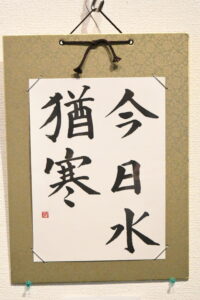 今日水
猶寒